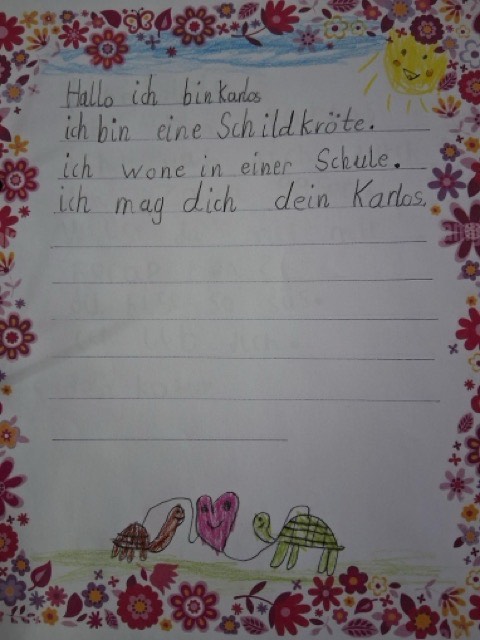 Hallo ich bin Karlos
ich bin eine Schildkröte.
ich wone in einer Schule.
ich mag dich dein Karlos.